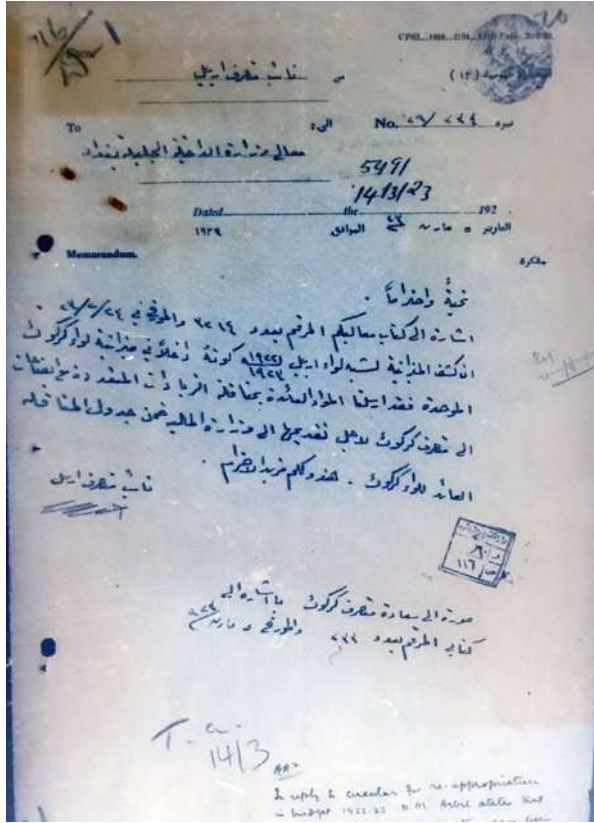 من نائب متصرف اربيل
To الى: No. ٢٩/٢٣٤ نمره
معالي وزارة الداخلية الجليلة بغداد
5491
14/3/23
Dated the 192
التاريخ ٥ مارت ٢٣ الموافق ١٩٢٣
Memorandum. مذكرة
تحية واحتراماً .
اشارة الى كتاب معاليكم المرقم بعدد ٣٢١٤ والمؤرخ في ٢٤/٢/٢٣
ان كشف الميزانية لسنة لواء اربيل ١٩٢٢ ١٩٢٣ كونه داخلاً في ميزانية لواء كركوك
الموحدة فقد ارسلنا المواد العائدة بمناقلة الزيادات المتعددة مع ايضاحات
الى متصرف كركوك لاجل تقديمها الى وزارة المالية ضمن جدول المناقله
العائد للواء كركوك . هذا ولكم مزيد الاحترام .
نائب متصرف اربيل
١١٦
صورة الى سعادة متصرف كركوك ما اشاره الى
كتابي المرقم بعدد ٢٣٣ والمؤرخ ٥ مارت ٩٢٣
T. a.
14/3
In reply to circular for re-appropriation
in budget 1922-23 Arbil states that